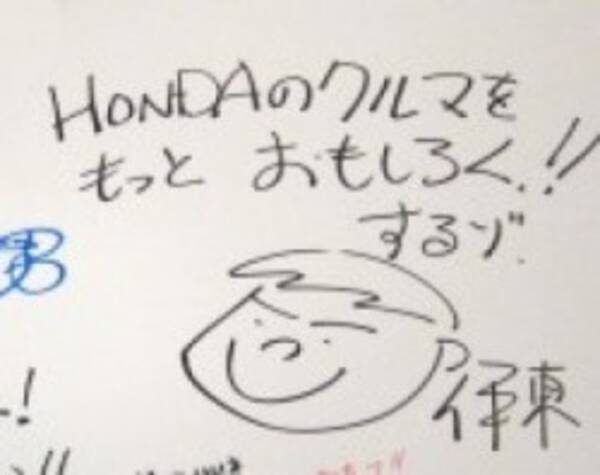 HONDAのクルマを
もっと おもしろく.!!
するゾ.
伊東